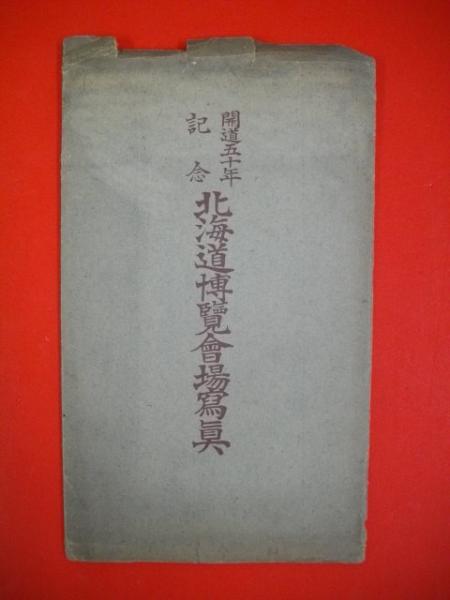 開道五十年
記念
北海道博覽會場寫眞